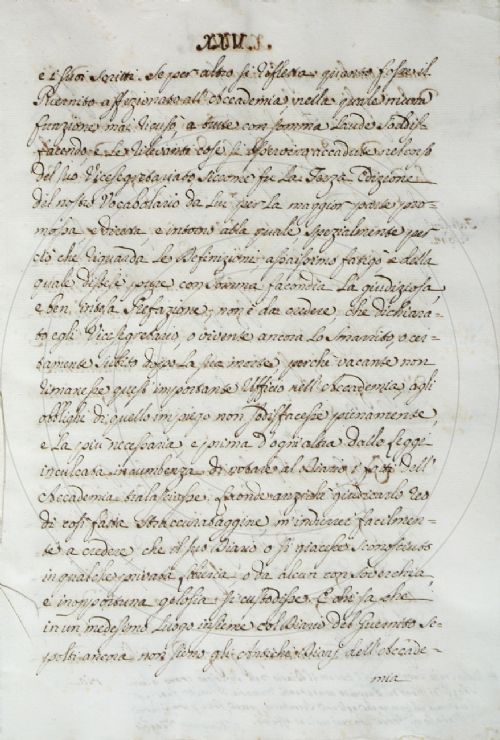 XXVI.
e i suoi Scritti. Se per altro si rifletta quanto fosse il
Guernito affezionato all'Accademia, nella quale niuna
funzione mai ricusò, a tutte con somma laude sodis-
facendo e le rilevanti cose si osservino accadute nel corso
del suo Vicesegretariato, siccome fu la Terza Edizione
del nostro Vocabolario da lui per la maggior parte pro-
mossa e intorno alla quale spezialmente per
ciò che riguarda le Definizioni assaissimo fatigò e della
quale distese pure con somma facondia la giudiziosa,
e ben intesa Prefazione; non è da credere, che dichiara-
to egli Vicesegretario, o vivente ancora lo Smarrito o cer-
tamente subito dopo la sua morte, perchè vacante non
rimanesse quest'importante Uffizio nell'Accademia, agli
obblighi di quello impiego non sodisfacesse pienamente,
e la più necessaria e prima d'ogni altra dalle leggi
inculcata incumbenza di notare al Diario i fatti dell'
Accademia tralasciasse. Laonde anzichè giudicarlo reo
di così fatta straccurataggine m'indurrei facilmen-
te a credere che il suo Diario o si giaccia sconosciuto
in qualche privata Libreria o da alcun con soverchia,
e inopportuna gelosia si custodisse. E chi sa che
in un medesimo luogo insieme col Diario del Guernito se-
polti ancora non sieno gli antichi Diarj dell'Accade-
mia